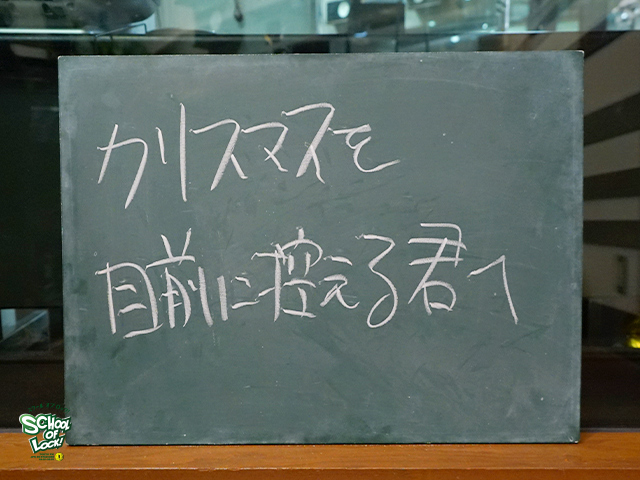 クリスマスを
目前に控える君へ
SCHOOL
OF
LOCK!